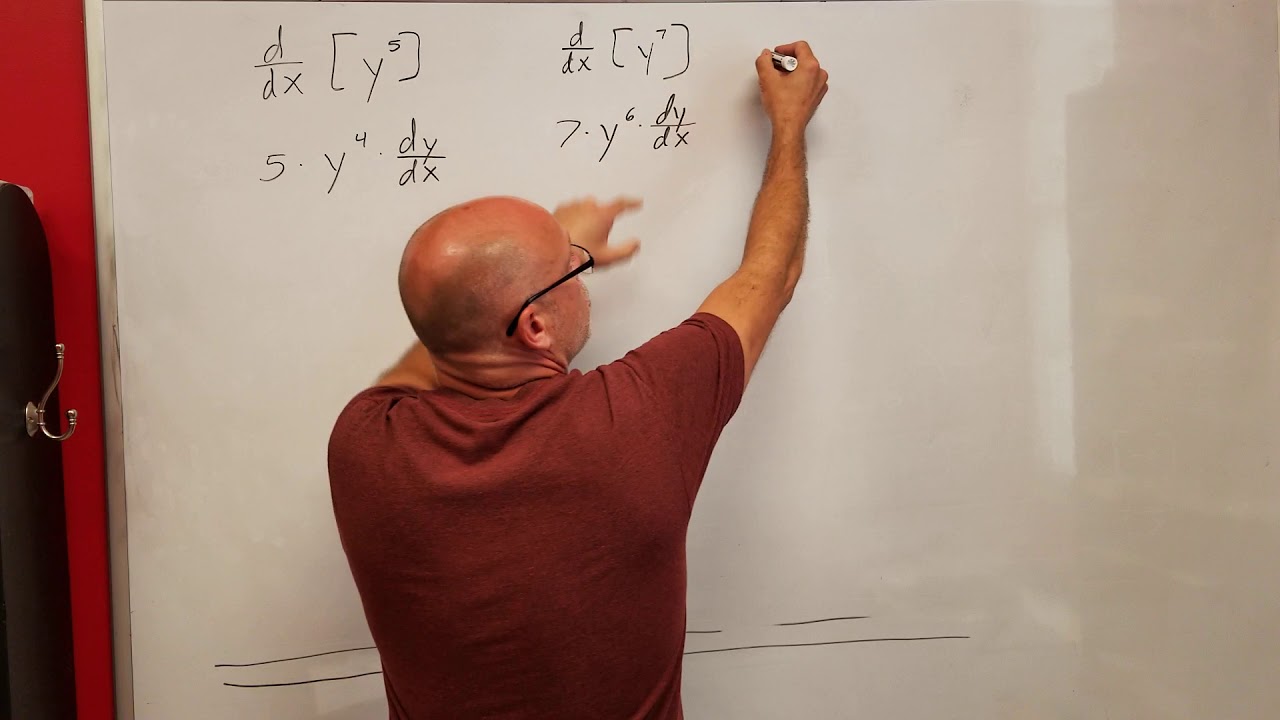 d/dx [y⁵]
5 · y⁴ · dy/dx
d/dx [y⁷]
7 · y⁶ · dy/dx